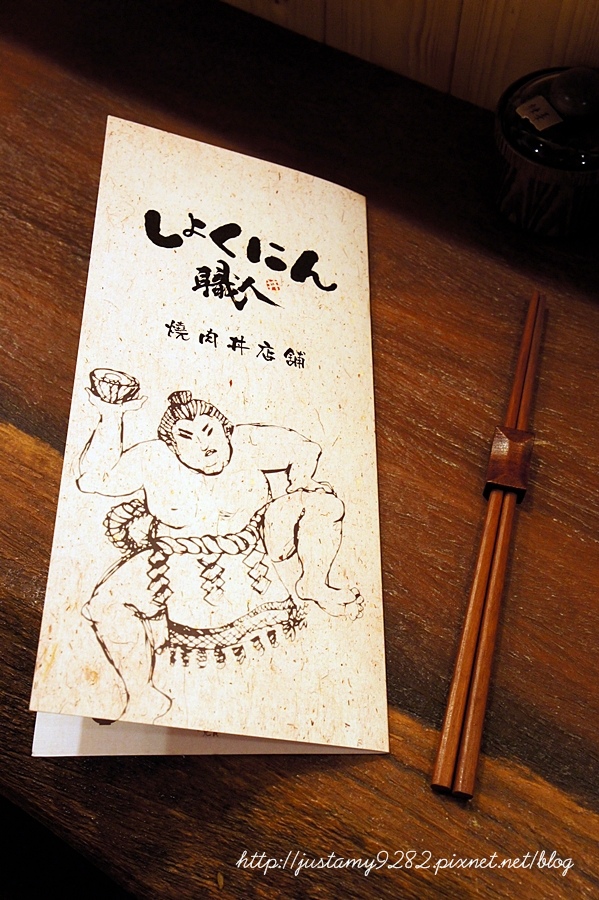 しょくにん
職人
燒肉丼店舖
http://justamy9282.pixnet.net/blog